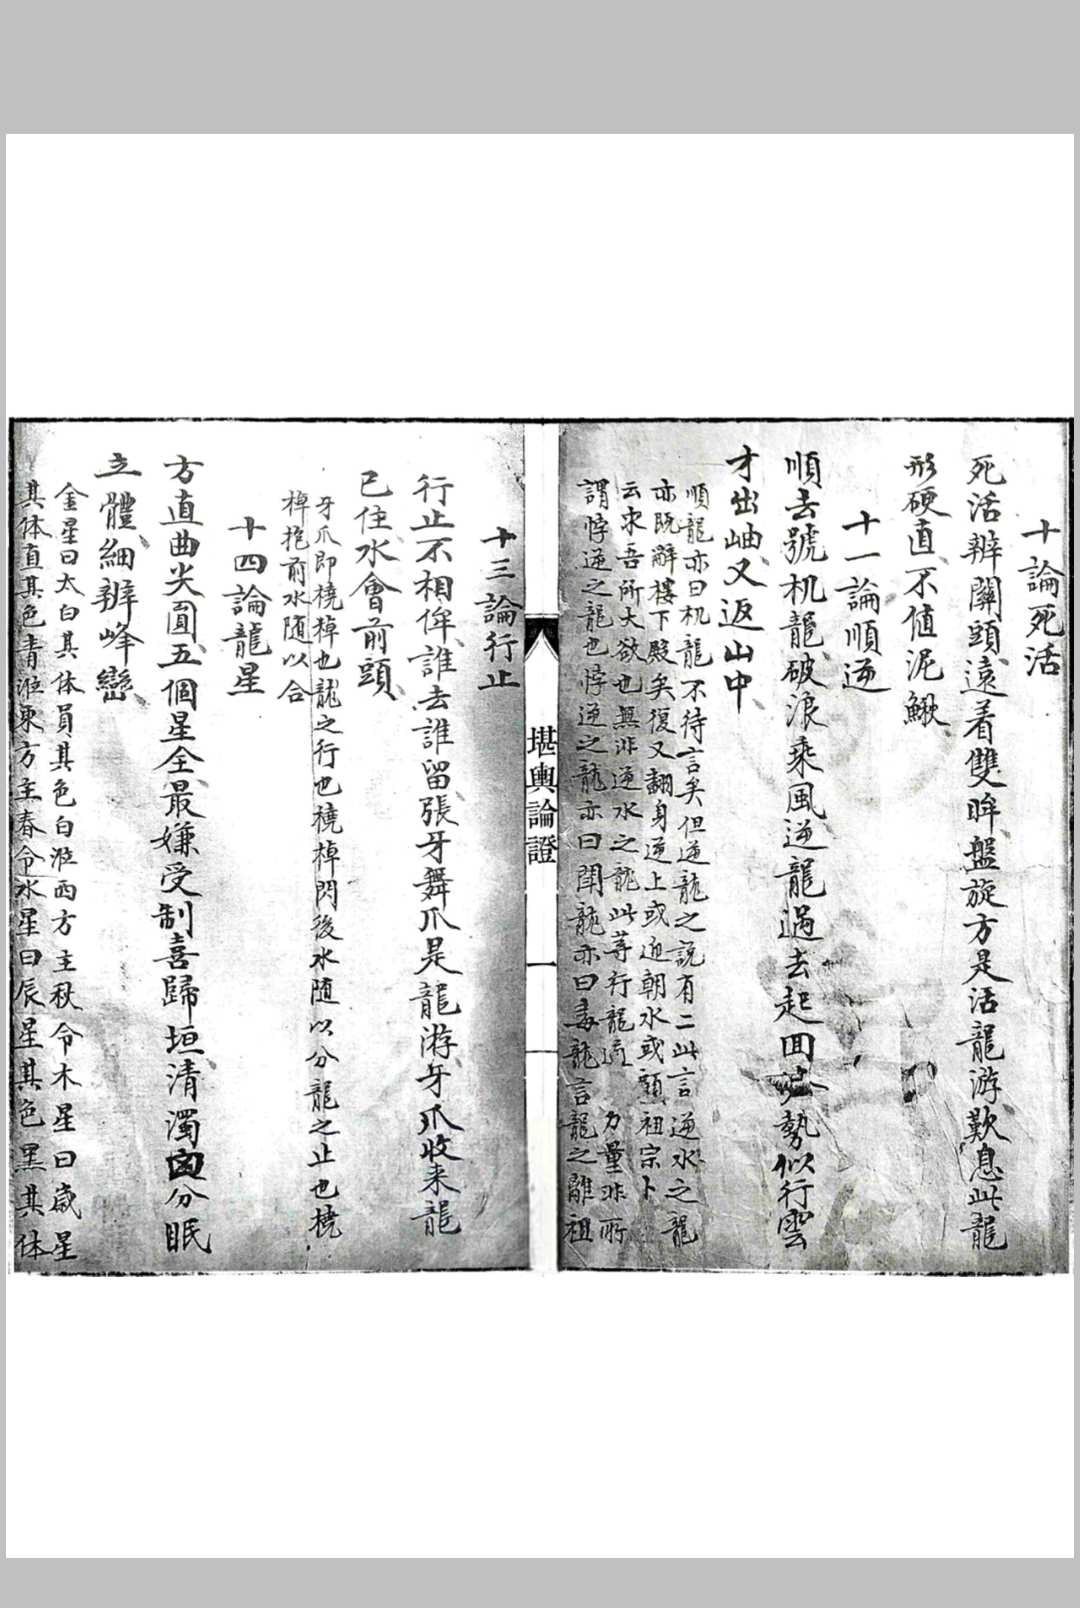 十論死活
死活辨關頭遠着雙眸盤旋方是活龍游歎息此龍
形硬直不值泥鰍
十一論順逆
順去號机龍破浪乘風逆龍過去起回 勢似行雲
才出岫又返山中
順龍亦曰机龍不待言矣但逆龍之說有二此言逆水之龍
亦既辭樓下殿矣復又翻身逆上或迎朝水或顧祖宗卜
云求吾所大欲也無非逆水之龍此等行龍 力量非所
謂悖逆之龍也悖逆之龍亦曰 龍亦曰毒龍言龍之離祖
堪輿論證
一
十三論行止
行止不相侔誰去誰留張牙舞爪是龍游牙爪收来龍
已住水會前頭
牙爪即橈棹也龍之行也橈棹閃後水随以分龍之止也橈
棹抱前水随以合
十四論龍星
方直曲尖圓五個星全最嫌受制喜歸垣清濁 分眠
立體細辨峰巒
金星曰太白其体員其色白涖西方主秋令木星曰歲星
其体直其色青涖東方主春令水星曰辰星其色黑其体